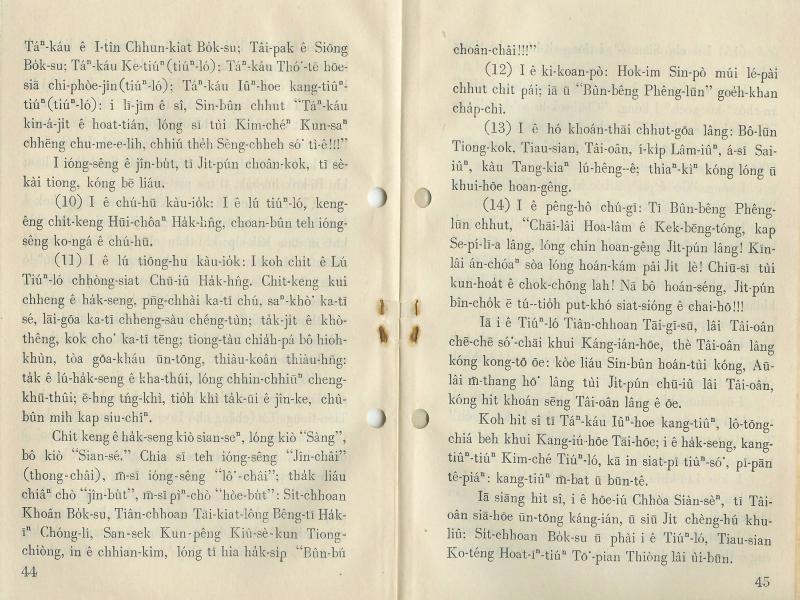 Táⁿ-káu ê I-tîn Chhun-kiat Bo̍k-su; Tâi-pak ê Siōng
Bo̍k-su; Táⁿ-káu Ke-tiúⁿ(tiúⁿ-ló); Táⁿ-káu Thó͘-tē hōe-
siā chi-phòe-jîn(tiúⁿ-ló); Táⁿ-káu Iûⁿ-hoe kang-tiûⁿ-
tiúⁿ(tiúⁿ-ló): i lī-jīm ê sî, Sin-bûn chhut “Táⁿ-káu
kin-á-ji̍t ê hoat-tián, lóng sī tùi Kim-chéⁿ Kun-saⁿ
chhēng chu-me-e-lih, chhiú the̍h Sèng-chheh só͘ tì-ê!!!”
I ióng-sêng ê jîn-bu̍t, tī Ji̍t-pún choân-kok, tī sè-
kài tiong, kóng bē liáu.
(10) I ê chú-hū kàu-io̍k: I ê lú tiúⁿ-ló, keng-
êng chi̍t-keng Hūi-chôaⁿ Ha̍k-hn̂g, choan-bûn teh ióng-
sêng ko-ngá ê chú-hū.
(11) I ê lú tiōng-hu kàu-io̍k: I koh chi̍t ê Lú
Tiúⁿ-ló chhòng-siat Chū-iû Ha̍k-hn̂g. Chi̍t-keng kui
chheng ê ha̍k-seng, pn̄g-chhài ka-tī chú, saⁿ-khò͘ ka-tī
sé, lāi-gōa ka-tī chheng-sàu chéng-tùn; ta̍k-ji̍t ê khò-
thêng, kok cho͘ ka-tī tēng; tiong-tàu chia̍h-pá bô hioh-
khùn, tòa gōa-kháu ūn-tōng, thiàu-koân thiàu-hn̄g:
ta̍k ê lú-ha̍k-seng ê kha-thúi, lóng chhin-chhiūⁿ cheng-
khū-thûi; ē-hng tńg-khì, tio̍h khì ta̍k-ūi ê jîn-ke, chú-
bûn mih kap siu-chîⁿ.
Chi̍t keng ê ha̍k-seng kiò sian-seⁿ, lóng kiò “Sàng”,
bô kiò “Sian-sé.” Chia sī teh ióng-sêng “Jîn-châi”
(thong-châi), m̄-sī ióng-sêng “lô͘-châi”; tha̍k liáu
chiâⁿ chò “jîn-bu̍t”, m̄-sī pìⁿ-chò “hòe-bu̍t”: Sit-chhoan
Khoán Bo̍k-su, Tiân-chhoan Tāi-kiat-lông Bêng-tī Ha̍k-
īⁿ Chóng-lí, San-sek Kun-pêng Kiù-sè-kun Tiong-
chiòng, in ê chhian-kim, lóng tī hia ha̍k-si̍p “Bûn-bú
44
choân-châi!!!”
(12) I ê ki-koan-pò: Hok-im Sin-pò múi lé-pài
chhut chi̍t pái; iā ū “Bûn-bêng Phêng-lūn” goe̍h-khan
cha̍p-chì.
(13) I ê hó khoán-thāi chhut-gōa lâng: Bô-lūn
Tiong-kok, Tiau-sian, Tâi-oân, í-ki̍p Lâm-iûⁿ, á-sī Sai-
iûⁿ, kàu Tang-kiaⁿ lú-hêng--ê; thiaⁿ-kìⁿ kóng lóng ū
khui-hōe hoan-gêng.
(14) I ê pêng-hô chú-gī: Tī Bûn-bêng Phêng-
lūn chhut, “Chāi-lâi Hoa-lâm ê Kek-bēng-tóng, kap
Se-pí-lī-a lâng, lóng chin hoan-gêng Ji̍t-pún lâng! Kīn-
lâi án-chóaⁿ sòa lóng hoán-kám pâi Ji̍t lè! Chiū-sī tùi
kun-hoa̍t ê chok-chōng lah! Nā bô hoán-séng, Ji̍t-pún
bîn-cho̍k ē tú--tio̍h put-khó siat-sióng ê chai-hō!!!
Iā i ê Tiúⁿ-ló Tiân-chhoan Tāi-gī-sū, lâi Tâi-oân
chē-chē só͘-chāi khui Káng-ián-hōe, thè Tâi-oân lâng
kóng kong-tō ōe: kòe liáu Sin-bûn hoán-tùi kóng, Aū-
lâi m̄-thang hō͘ lâng tùi Ji̍t-pún chū-iû lâi Tâi-oân,
kóng hit khoán sēng Tâi-oân lâng ê ōe.
Koh hit sî tī Táⁿ-káu Iûⁿ-hoe kang-tiûⁿ, lô-tōng-
chiá beh khui Kang-iú-hōe Tāi-hōe; i ê ha̍k-seng, kang-
tiûⁿ-tiúⁿ Kim-ché Tiúⁿ-ló, kā in siat-pī tiûⁿ-só͘, pī-pān
tê-piáⁿ: kang-tiûⁿ m̄-bat ū bûn-tê.
Iā siāng hit sî, i ê hōe-iú Chhòa Siàn-sèⁿ, tī Tâi-
oân siā-hōe ūn-tōng káng-ián, ū siū Ji̍t chèng-hú khu-
liû; Sit-chhoan Bo̍k-su ū phài i ê Tiúⁿ-ló, Tiau-sian
Ko-téng Hoat-īⁿ-tiúⁿ Tō͘-pian Thiòng lâi ùi-būn.
45